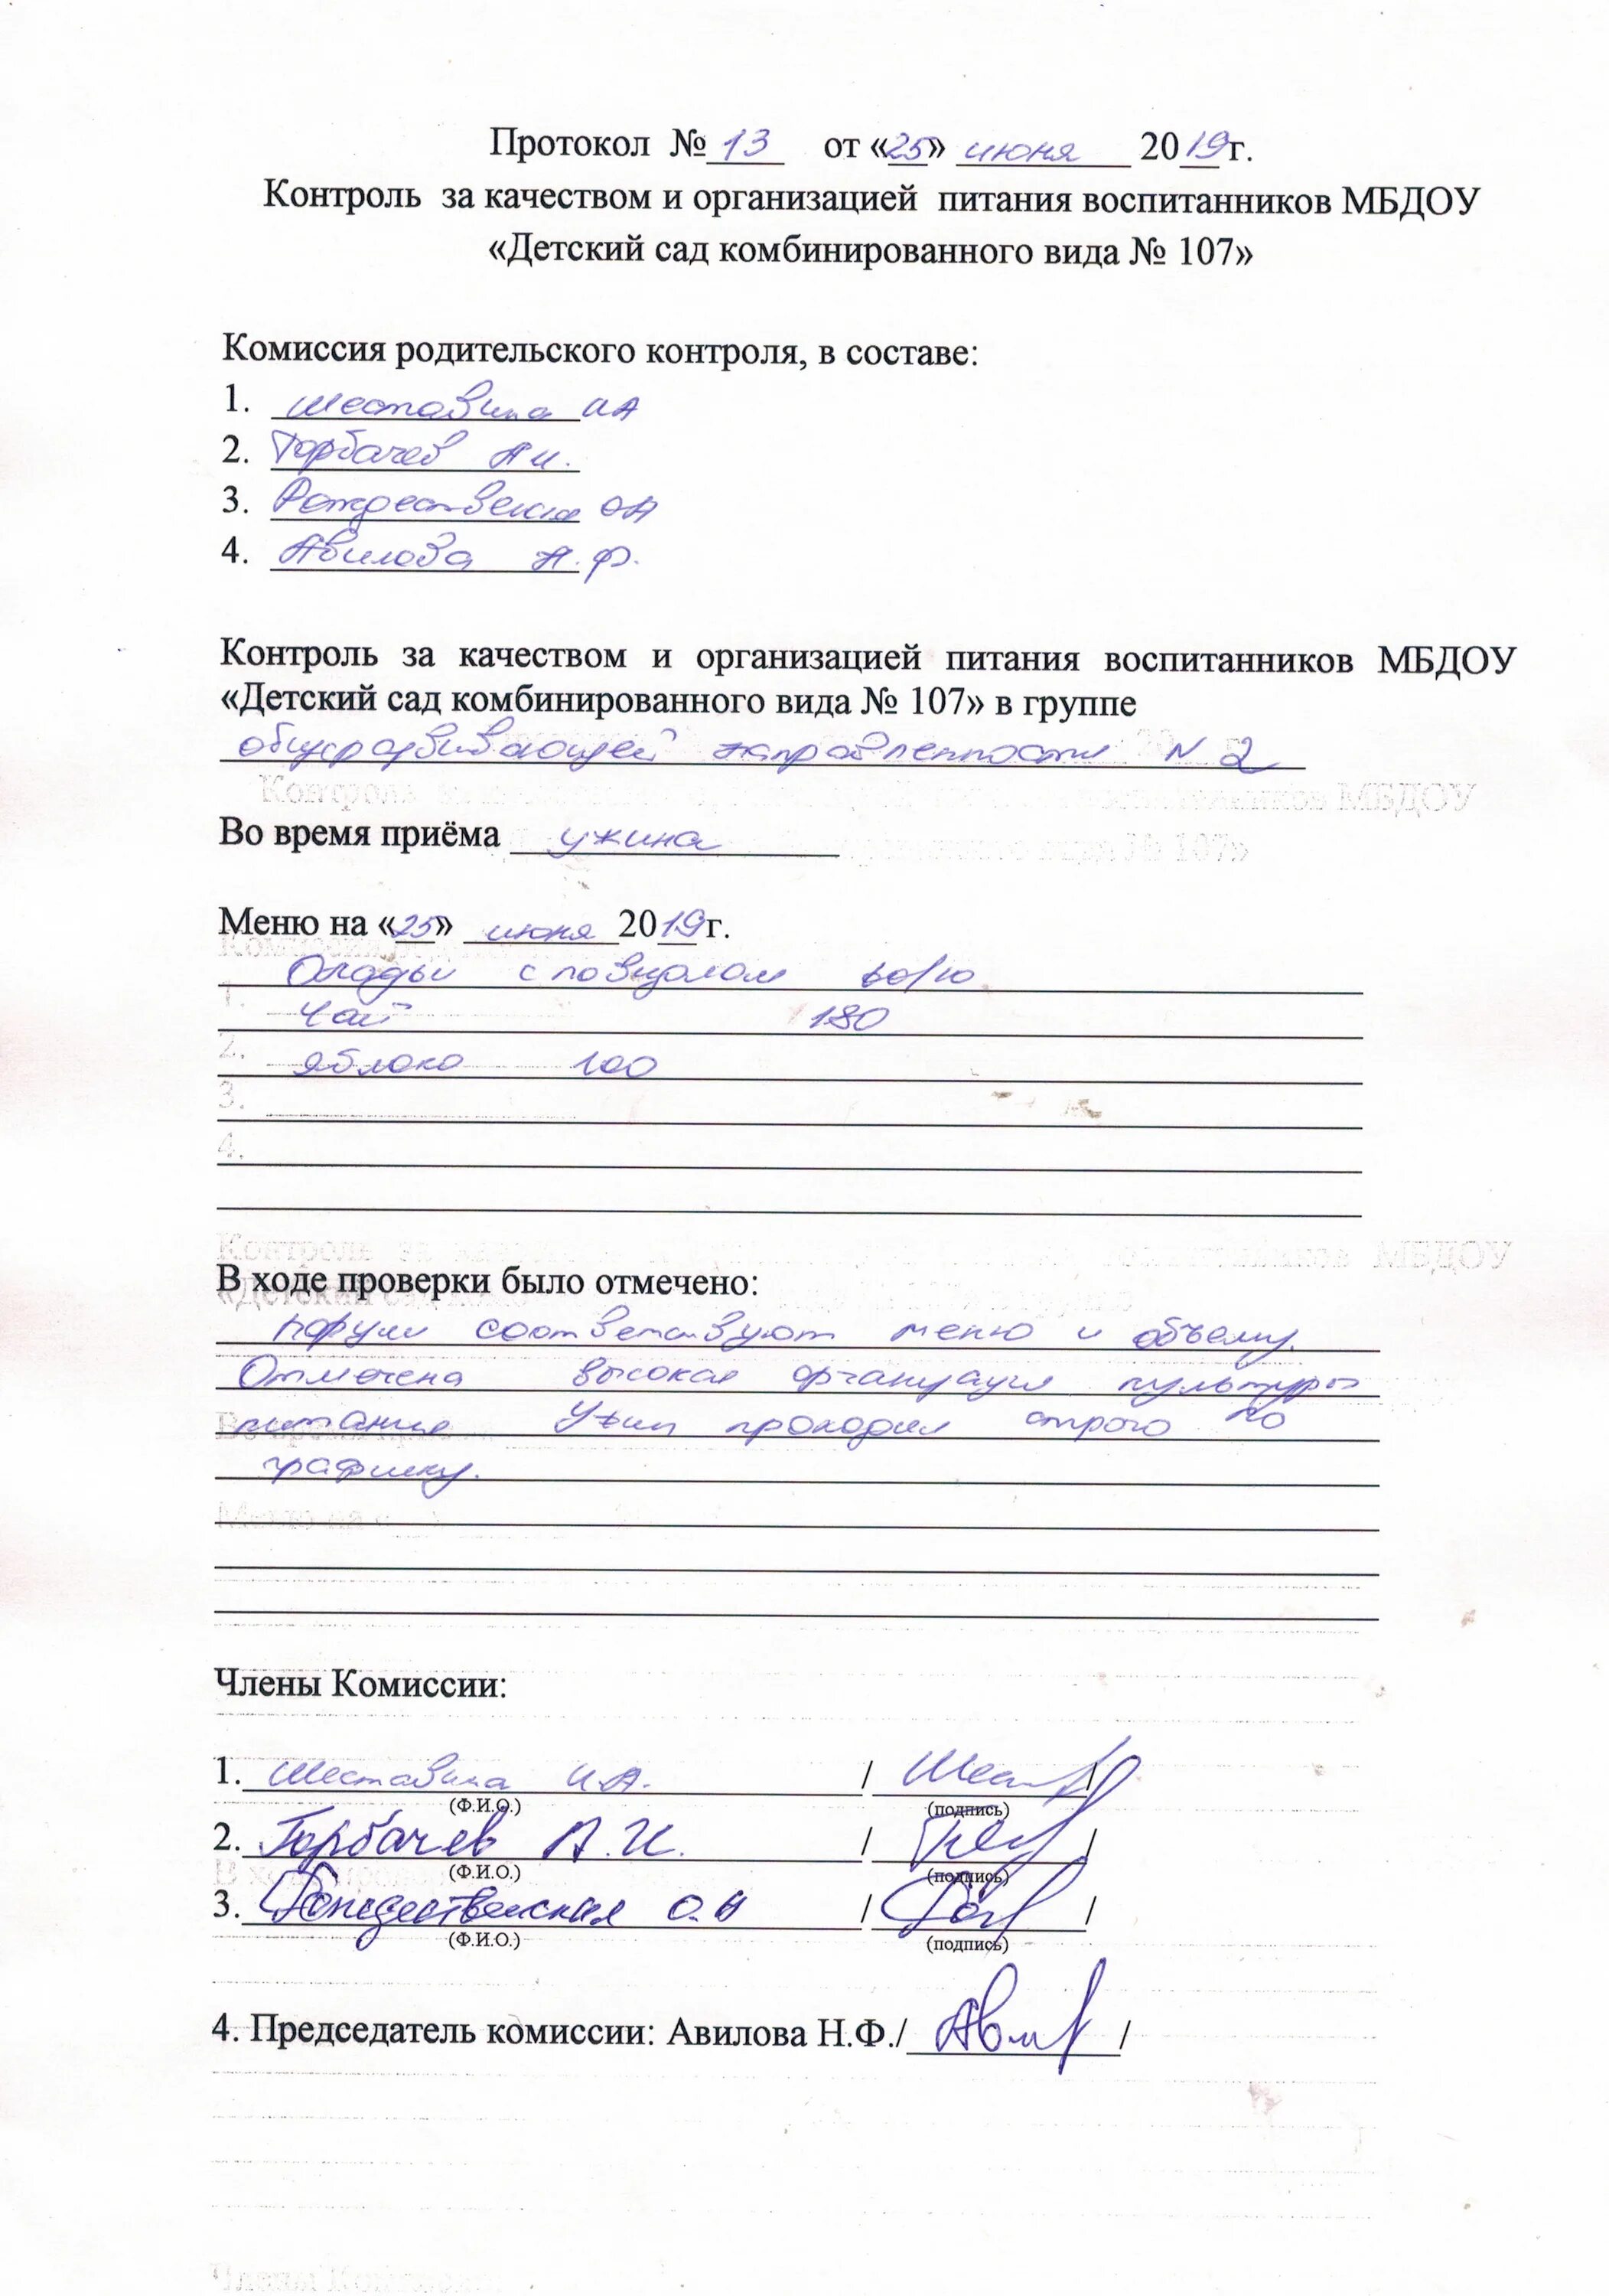 Протокол № 13 от «25» июня 2019 г.
Контроль за качеством и организацией питания воспитанников МБДОУ
«Детский сад комбинированного вида № 107»
Комиссия родительского контроля, в составе:
1. Шеставина И А
2. Горбачев А И.
3. Рождественская ОА
4. Авилова Н.Ф.
Контроль за качеством и организацией питания воспитанников МБДОУ
«Детский сад комбинированного вида № 107» в группе
общеразвивающей направленности N 2
Во время приёма ужина
Меню на «25» июня 2019 г.
Оладьи с повидлом 60/10
Чай 180
яблоко 100
В ходе проверки было отмечено:
порции соответствуют меню и объему.
Отмечена высокая организация культуры
питания Ужин проходил строго по
графику.
Члены Комиссии:
1. Шеставина И.А. / /
(Ф.И.О.) (подпись)
2. Горбачев А.И. / /
(Ф.И.О.) (подпись)
3. Рождественская О.А / /
(Ф.И.О.) (подпись)
4. Председатель комиссии: Авилова Н.Ф./ /